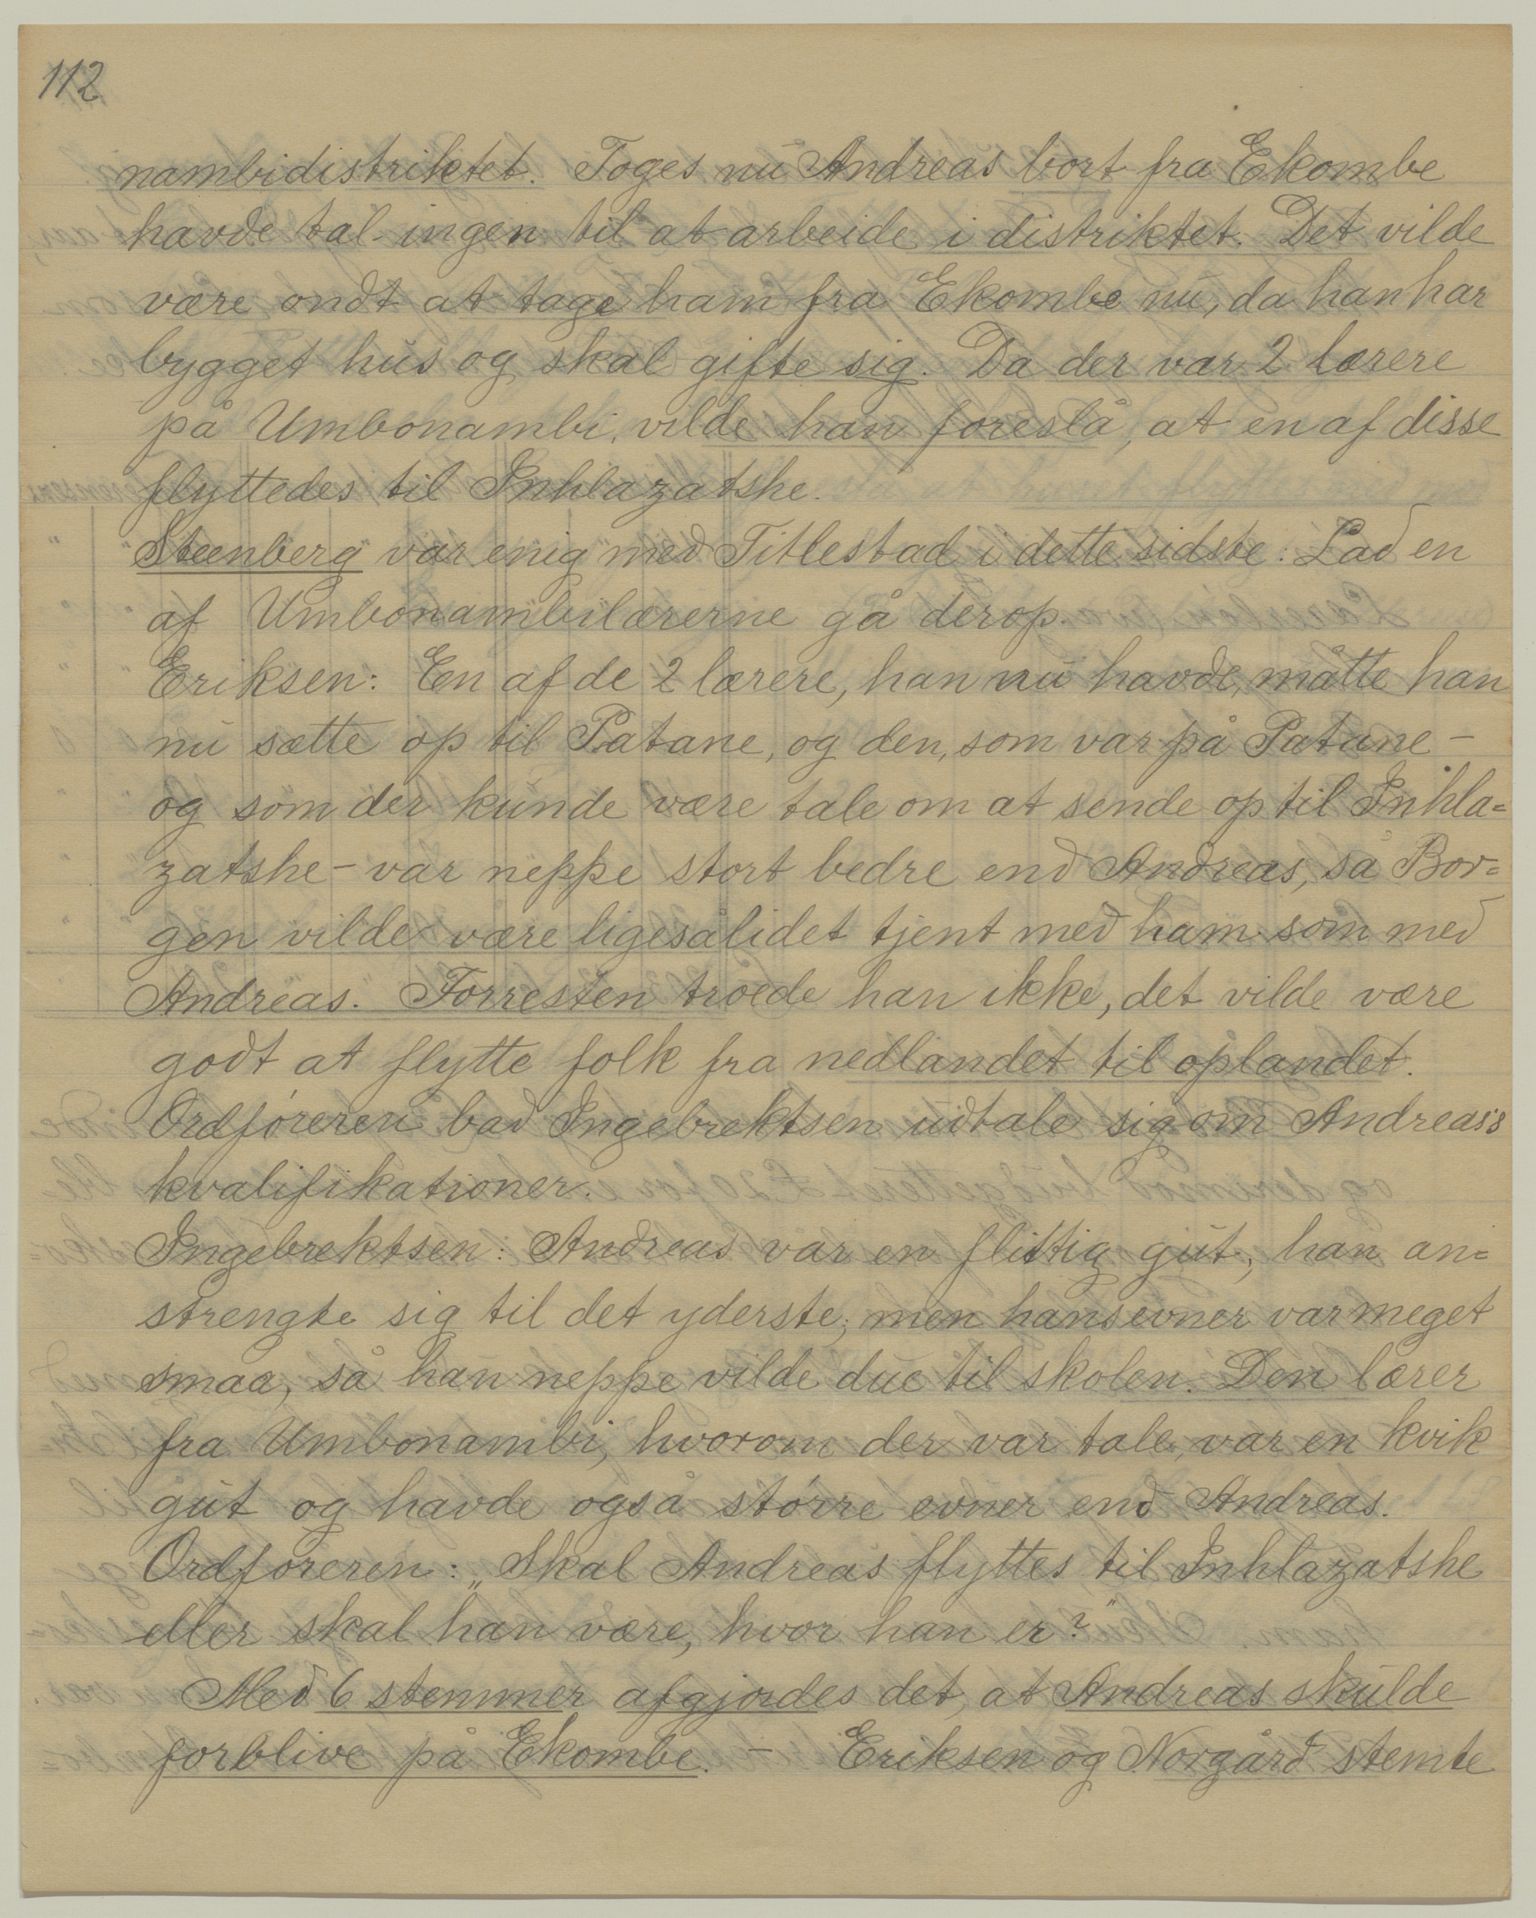 112
nambidistriktet. Toges nu Andreas bort fra Ekombe
havde tal. ingen til at arbeide i distriktet. Det vilde
være ondt at tage ham fra Ekombe nu, da han har
bygget hus og skal gifte sig. Da der var 2 lærere
på Umbonambi, vilde han foreslå, at en af disse
flyttedes til Inhlazatshe.
Steenberg var enig med Titlestad i dette sidste: Lad en
af Umbonambilærerne gå derop.
Eriksen: En af de 2 lærere, han nu havde, måtte han
nu sætte op til Patane, og den, som var på Patane –
og som der kunde være tale om at sende op til Inhla=
zatshe – var neppe stort bedre end Andreas, så Bor=
gen vilde være ligesålidet tjent med ham som med
Andreas. Forresten troede han ikke, det vilde være
godt at flytte folk fra nedlandet til oplandet.
Ordføreren bad Ingebrektsen udtale sig om Andreas's
kvalifikationer.
Ingebrektsen: Andreas var en flittig gut; han an=
strengte sig til det yderste; men hans evner var meget
smaa, så han neppe vilde due til skolen. Den lærer
fra Umbonambi, hvorom der var tale, var en kvik
gut og havde også større evner end Andreas.
Ordføreren: „Skal Andreas flyttes til Inhlazatshe
eller skal han være, hvor han er?"
Med 6 stemmer afgjordes det, at Andreas skulde
forblive på Ekombe. – Eriksen og Norgård stemte